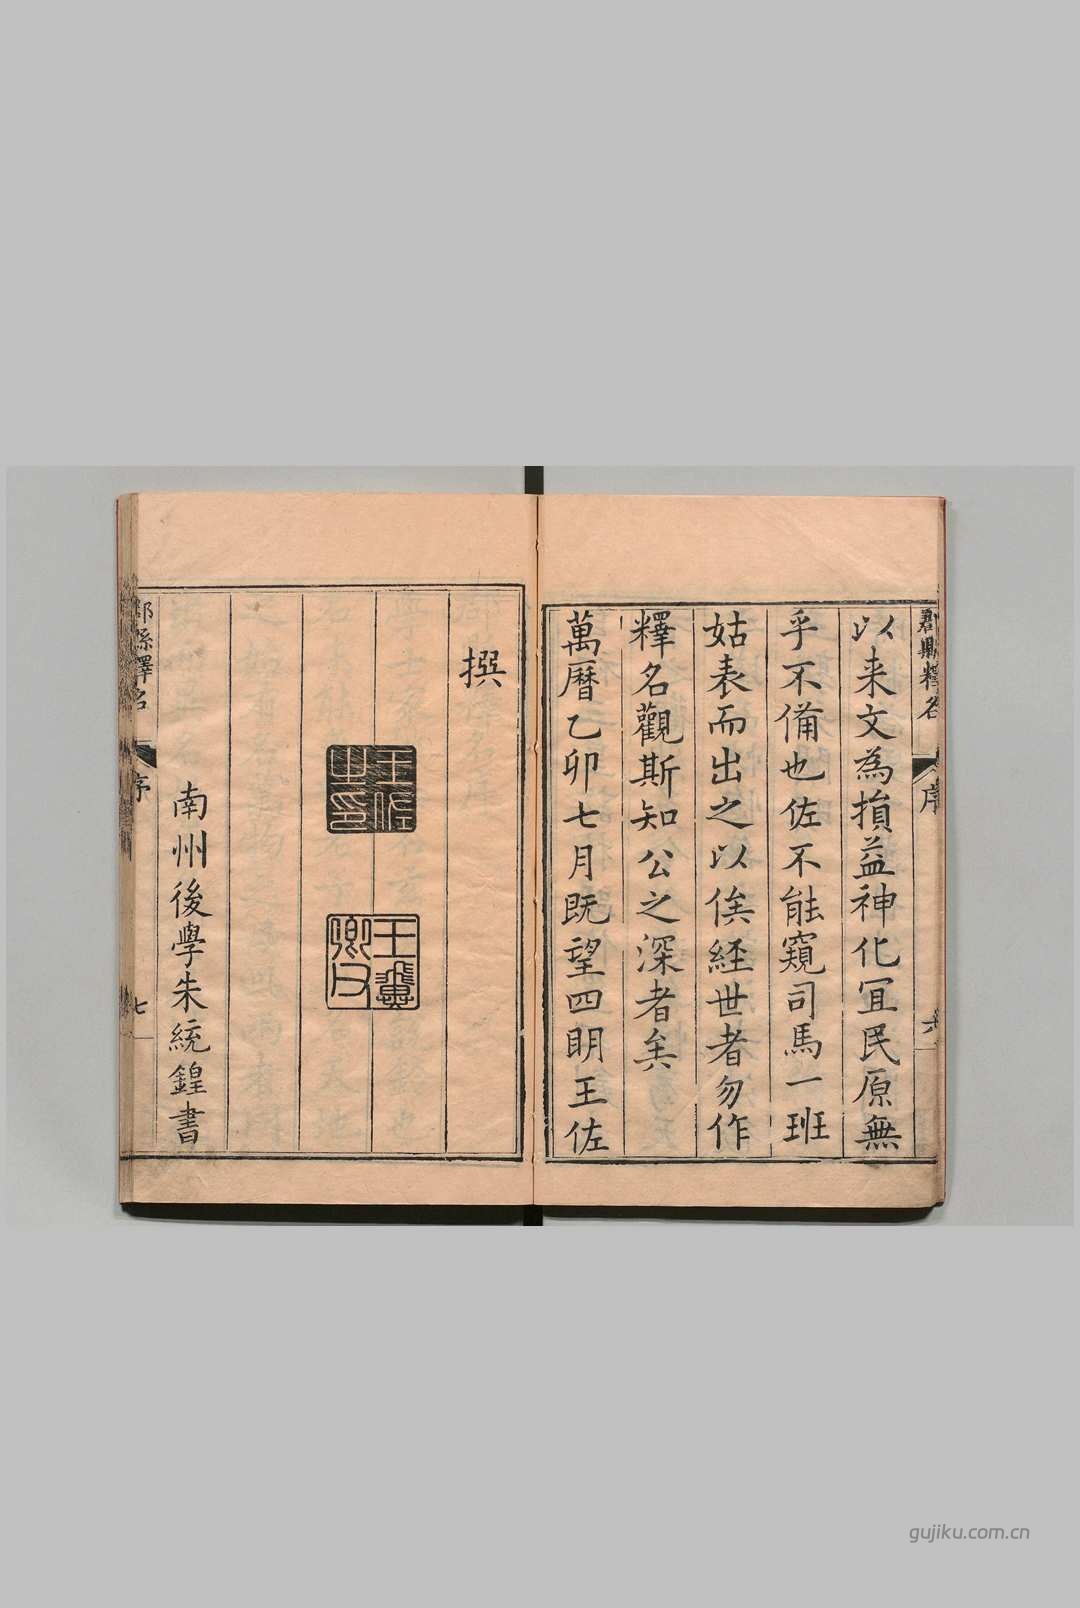 郡縣釋名
序
六
以来文為損益神化冝民原無
乎不備也佐不能窺司馬一班
姑表而出之以俟経世者勿作
釋名觀斯知公之深者矣
萬曆乙卯七月既望四明王佐
撰
王佐之印
王翼卿父
南州後學朱統鍠書
郡縣釋名
序
七
gujiku.com.cn